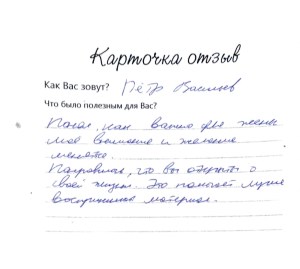 Карточка отзыв
Как Вас зовут? Пётр Васильев
Что было полезным для Вас?
Понял, как важно для жены
моё внимание и желание
меняться.
Понравилось, что вы открыты о
своей жизни. Это помогает лучше
воспринимать материал.